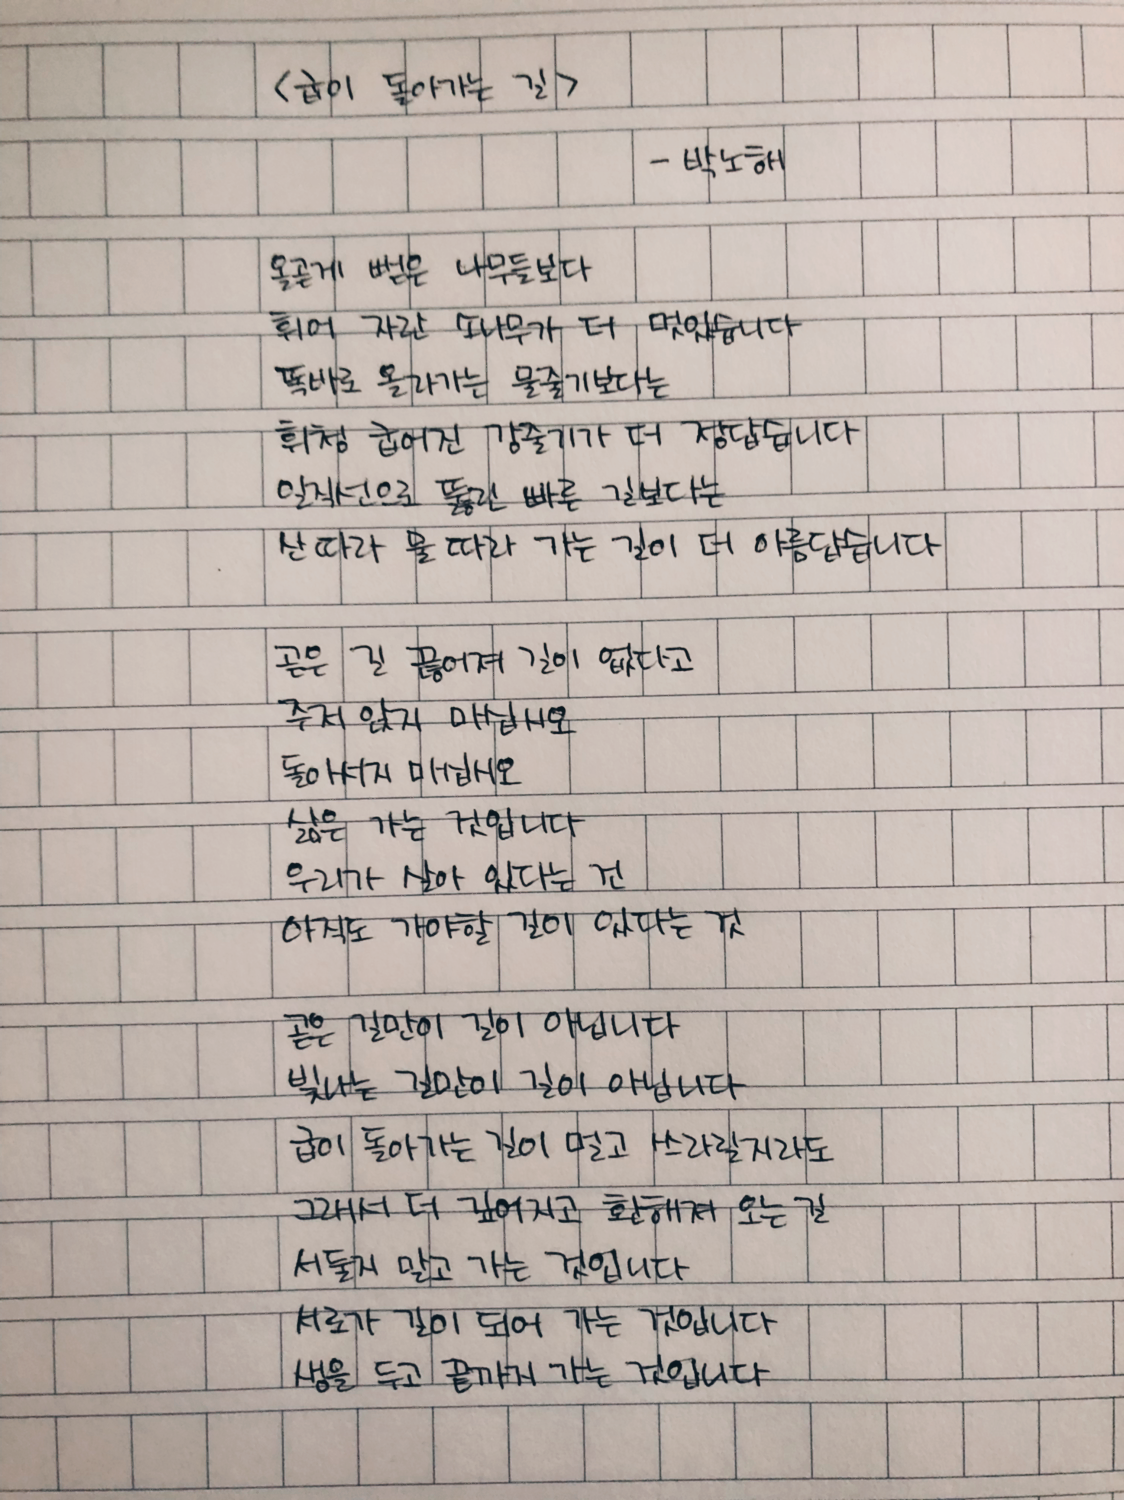 <굽이 돌아가는 길>
- 박노해
올곧게 뻗은 나무들보다
휘어 자란 소나무가 더 멋있습니다
똑바로 올라가는 물줄기보다는
휘청 굽어진 강줄기가 더 정답습니다
일직선으로 뚫린 빠른 길보다는
산 따라 물 따라 가는 길이 더 아름답습니다
곧은 길 끊어져 길이 없다고
주저 앉지 마십시오
돌아서지 마십시오
삶은 가는 것입니다
우리가 살아 있다는 건
아직도 가야할 길이 있다는 것
곧은 길만이 길이 아닙니다
빛나는 길만이 길이 아닙니다
굽이 돌아가는 길이 멀고 쓰라릴지라도
그래서 더 깊어지고 환해져 오는 길
서둘지 말고 가는 것입니다
서로가 길이 되어 가는 것입니다
생을 두고 끝까지 가는 것입니다